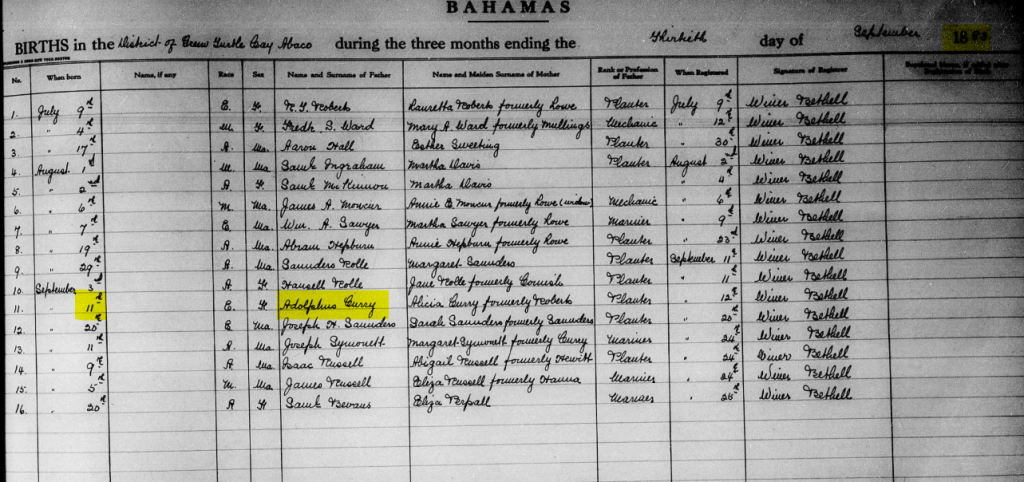 BAHAMAS
BIRTHS in the District of Green Turtle Cay Abaco during the three months ending the Thirtieth day of September 18
No. When born Name, if any Race Sex Name and Surname of Father Name and Maiden Surname of Mother Rank or Profession of Father When Registered Signature of Registrar
1. July 9th E. F. Roberts Lauretta Roberts formerly Lowe Planter July 9th Winer Bethell
2. " 4th M. F. Fredk S. Ward Mary A. Ward formerly Mullings Mechanic " 12th Winer Bethell
3. " 17th A. Ma. Aaron Hall Esther Sweeting Planter " 30th Winer Bethell
4. August 1st M. Ma. Saml Ingraham Martha Davis Planter August 2nd Winer Bethell
5. " 2nd A. F. Saml McKinnon Martha Davis " 4th Winer Bethell
6. " 6th M. Ma. James A. Moncur Annie E. Moncur formerly Lowe (widow) Mechanic " 6th Winer Bethell
7. " 7th E. Ma. Wm. A. Sawyer Martha Sawyer formerly Lowe Mariner " 9th Winer Bethell
8. " 19th A. Ma. Abram Hepburn Annie Hepburn formerly Lowe Planter " 23rd Winer Bethell
9. " 29th A. Ma. Saunders Rolle Margaret Saunders Planter September 11th Winer Bethell
10. September 3rd A. F. Hansell Rolle Jane Rolle formerly Cornish Planter " 11th Winer Bethell
11. " 11th E. F. Adolphus Curry Alicia Curry formerly Roberts Planter " 12th Winer Bethell
12. " 20th E. Ma. Joseph H. Saunders Sarah Saunders formerly Saunders Planter " 20th Winer Bethell
13. " 11th A. Ma. Joseph Symonett Margaret Symonett formerly Curry Mariner " 24th Winer Bethell
14. " 9th A. Ma. Isaac Russell Abigail Russell formerly Hewitt Planter " 24th Winer Bethell
15. " 5th M. Ma. James Russell Eliza Russell formerly Hanna Mariner " 24th Winer Bethell
16. " 20th A. F. Saml Bevans Eliza Mariner " 28th Winer Bethell